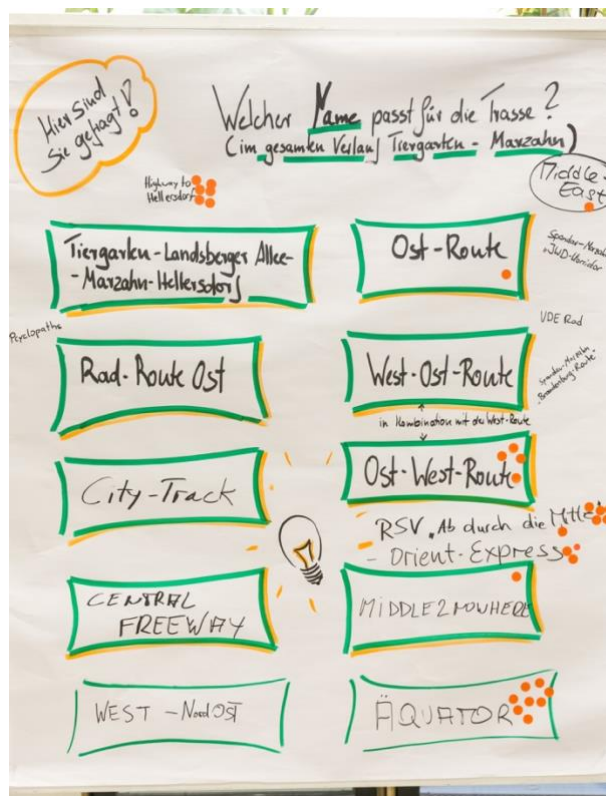 Hier sind
Sie gefragt!
Welcher Name passt für die Trasse?
(im gesamten Verlauf Tiergarten - Marzahn)
Highway to
Hellersdorf
Middle-
East
Tiergarten-Landsberger Allee-
-Marzahn-Hellersdorf
Ost-Route
Spandau-Marzahn
VDE Rad
Rad-Route Ost
West-Ost-Route
Spandau-Marzahn
Brandenburg-Route"
in Kombination mit der West-Route
City-Track
Ost-West-Route
RSV "Ab durch die Mitte"
- Orient-Express
CENTRAL
FREEWAY
MIDDLE2NOWHERE
WEST-NordOST
ÄQUATOR